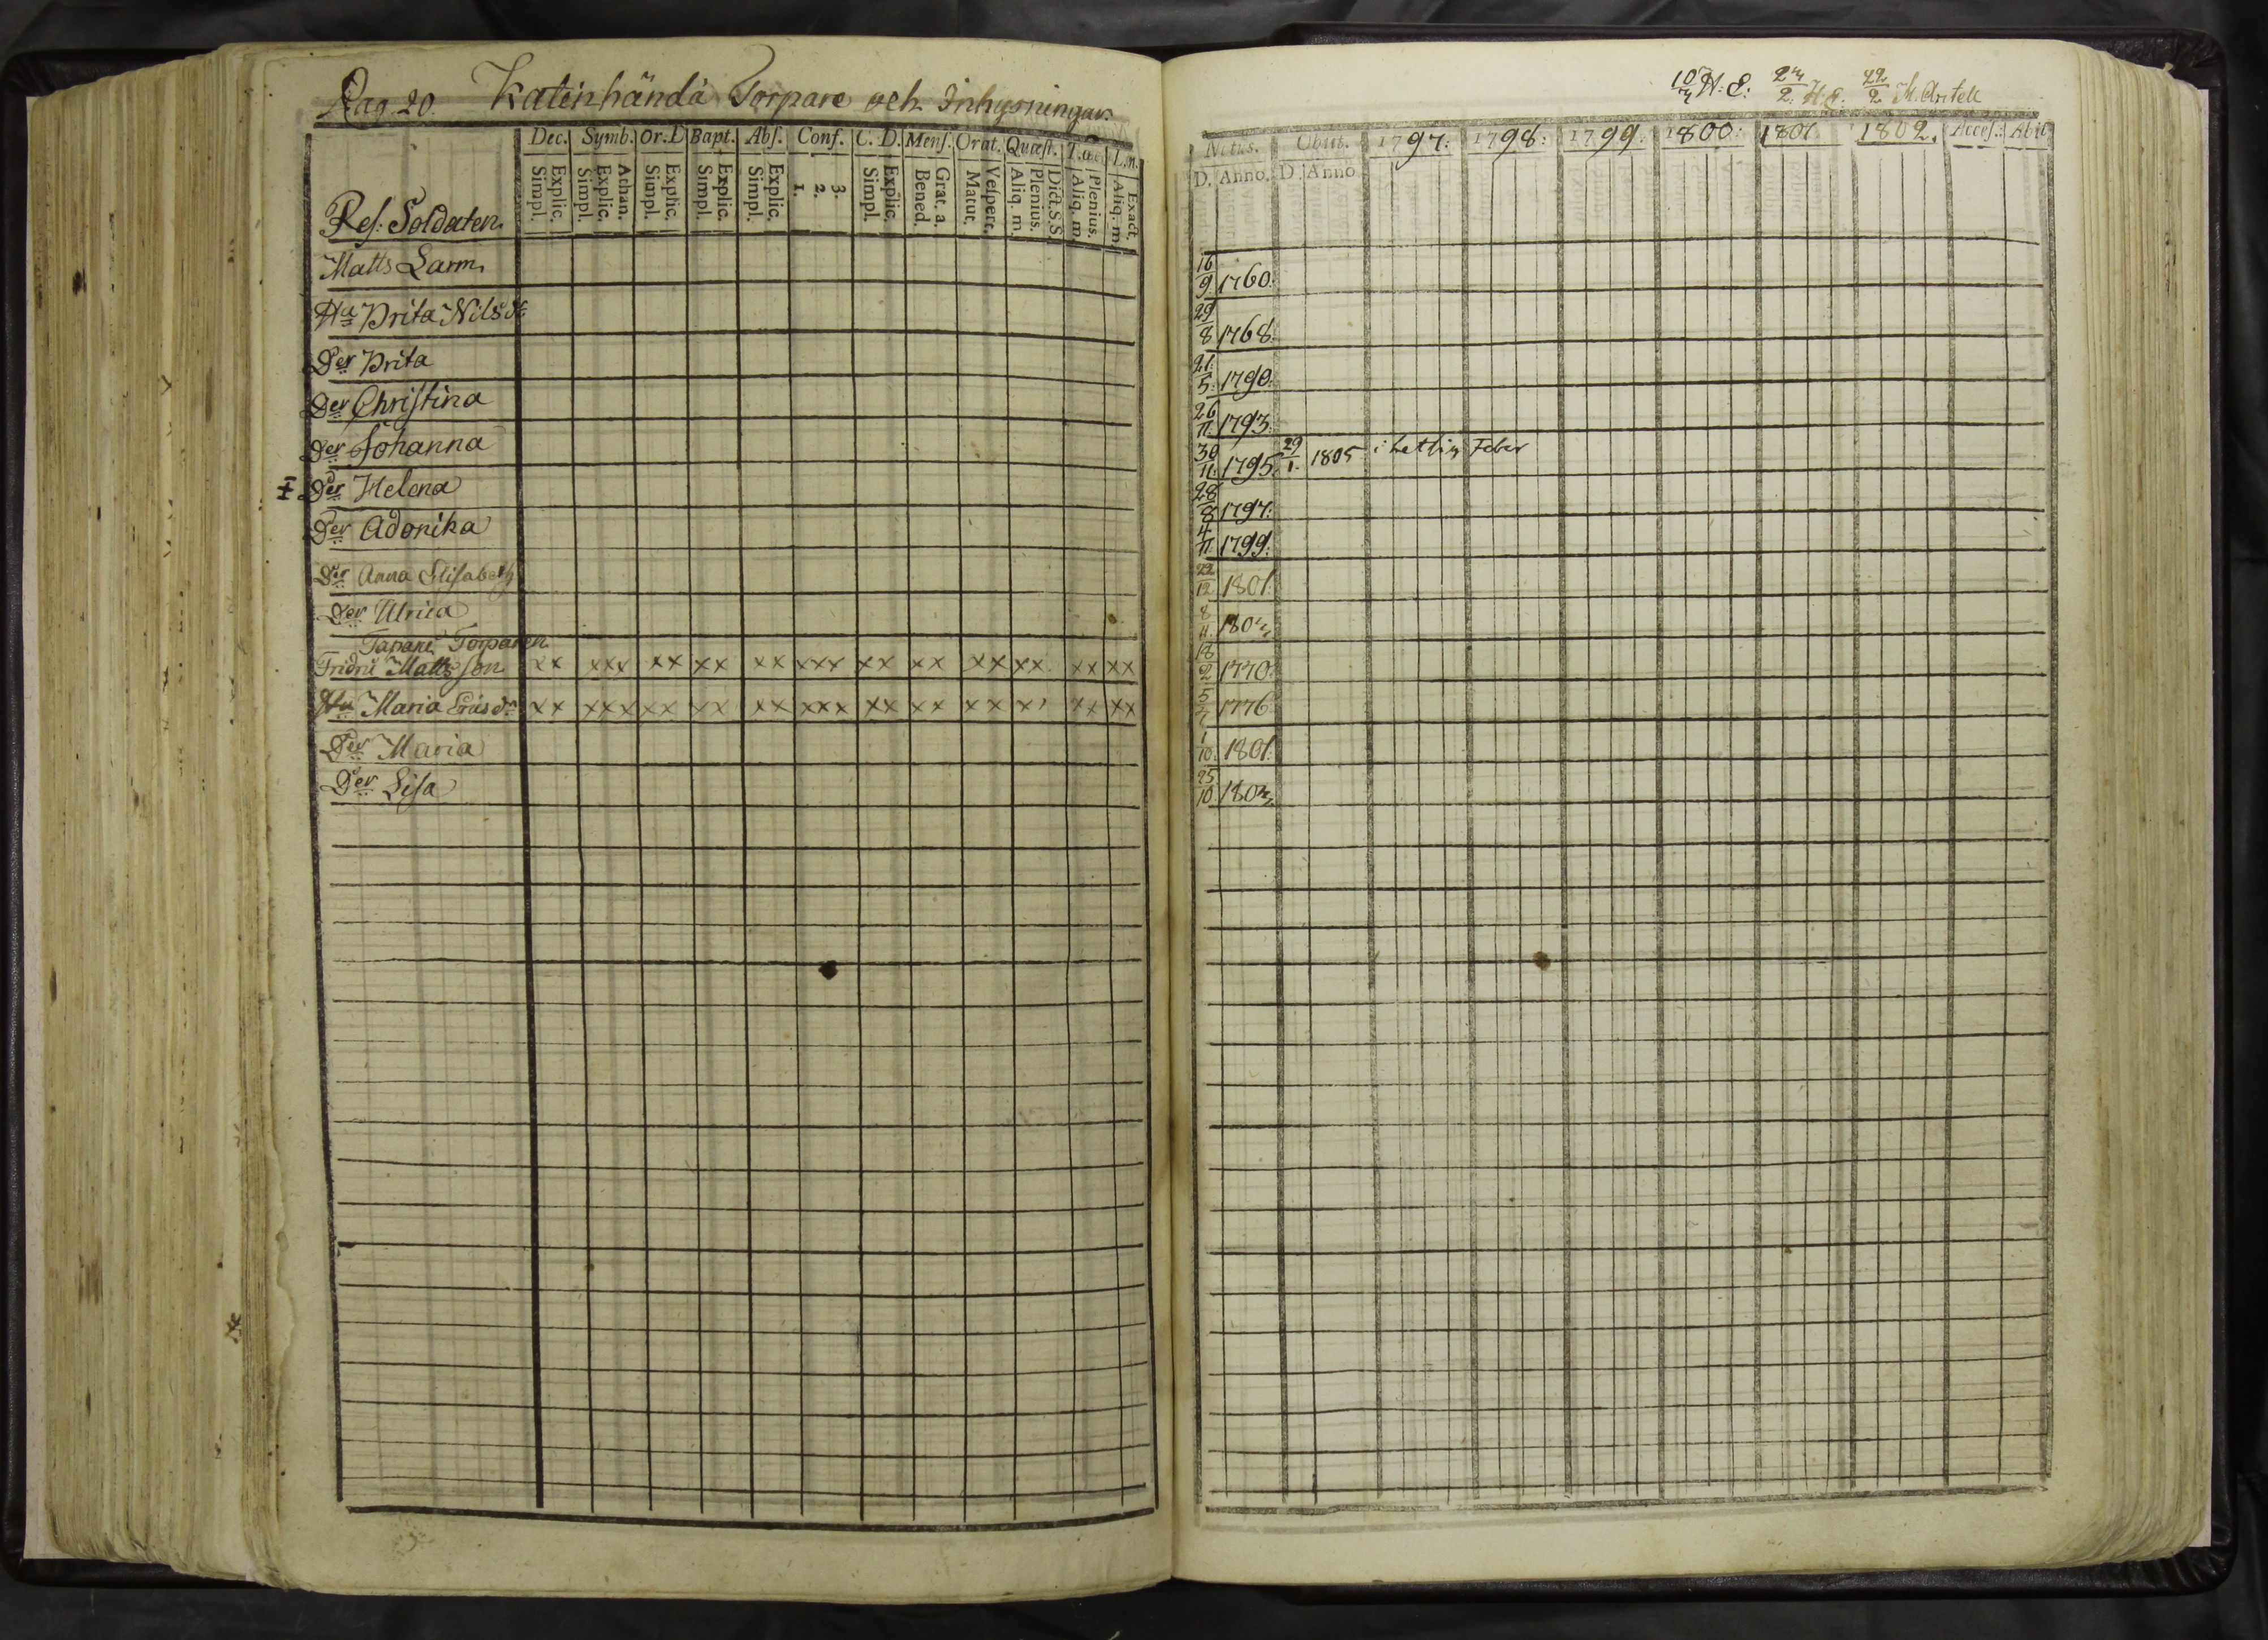 Pag. 20. Katinhändä Torpare och Inhysningar.
Dec. Symb. Or. D Bapt. Abſ. Conf. C. D. Menſ. Orat. Quæſt. T. œc. L. n.
Explic. Simpl. Achan. Explic. Simpl. Explic. Simpl. Explic. Simpl. Explic. Simpl. 3. 2. 1. Explic. Simpl. Grat. a. Bened. Veſpert. Matut. Dict. S. S. Plenius. Aliq. m. Plenius. Aliq. m. Exact. Aliq. m.
Reſ: Soldaten
Matts Larm
Hu Brita Nils dr
Der Brita
Der Chriſtina
Der Johanna
Der Helena
Der Adonika
Der Anna Eliſabeth
Der Ulrica
Torparen
Fridric Matts ſon xx xxx xx xx xx xxx xx xx xx xx xx xx
Hu Maria Ers dr xx xxx xx xx xx xxx xx xx xx x xx xx
Der Maria
Der Liſa
H. E: 2 H. E. 2
Natus. Obiit. 1797. 1798. 1799. 1800: 1801. 1802. Acceſ. Abit
D. Anno. D. Anno
16/9 1760.
29/8 1768.
21/5. 1790.
26/11 1793.
30/11 1795. 29/1. 1805 i hettsig Feber
28/8 1797.
4/11 1799.
22/12 1801.
8/11
18/2 1770.
5/7 1776
1/10. 1801.
25/10